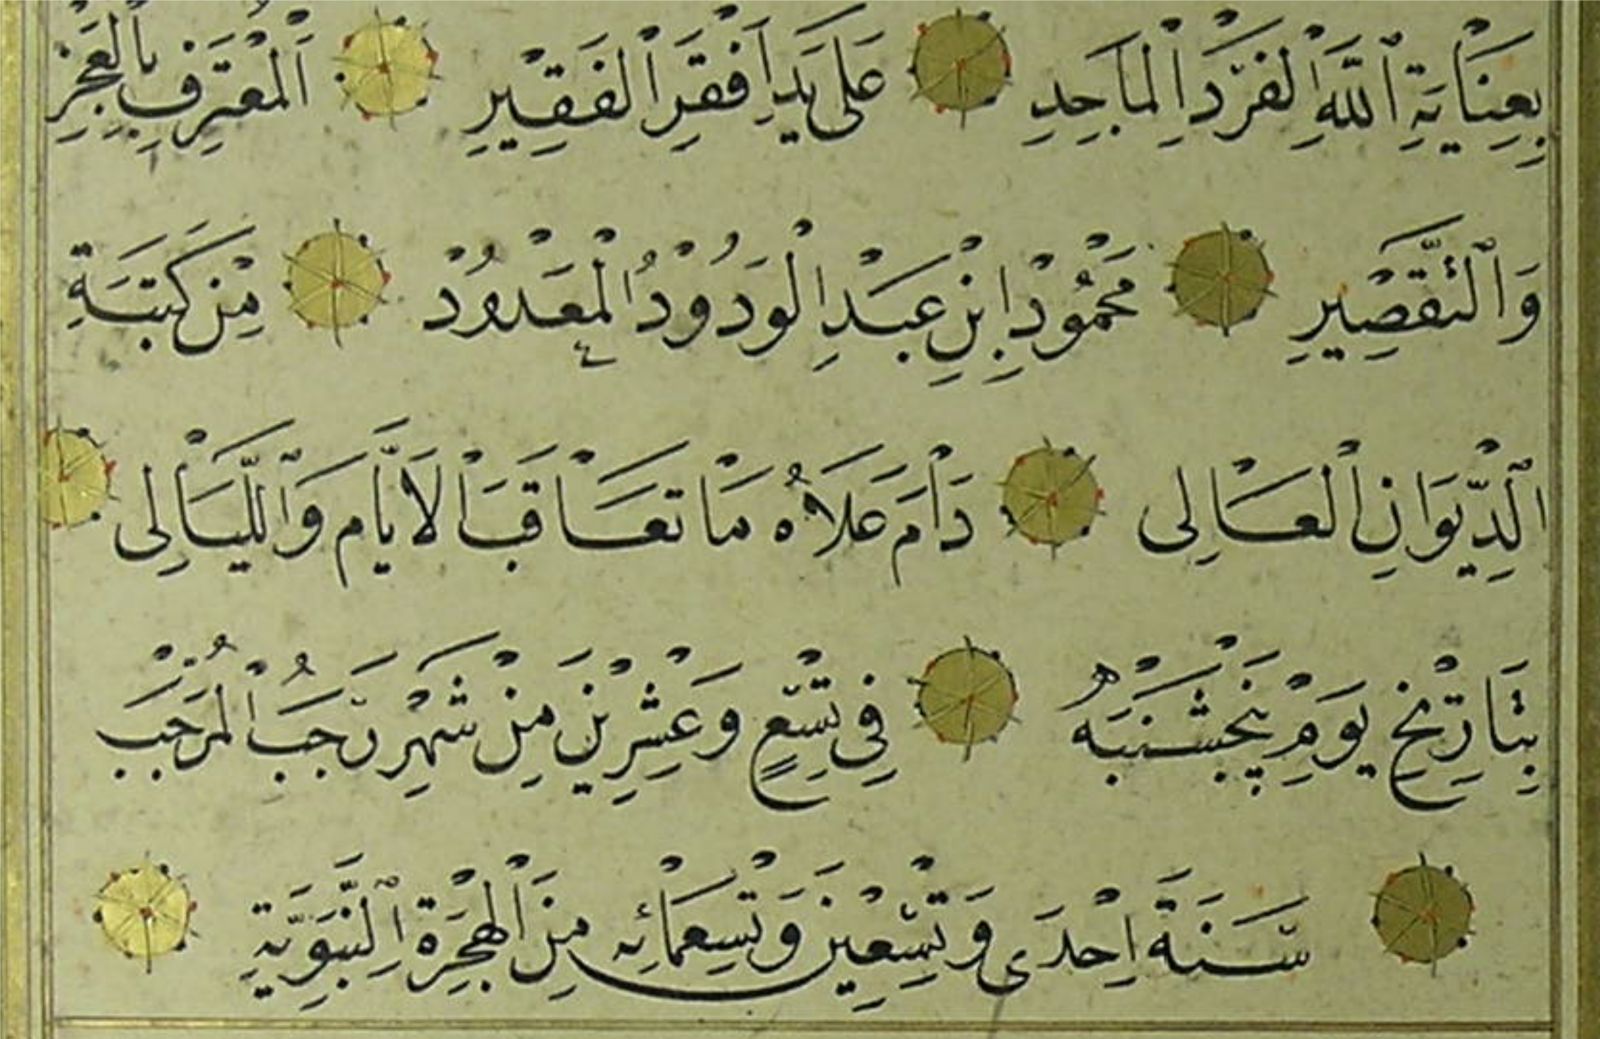 بِعِنَايَةِ ٱللّٰهِ الْفَرْدِ الْمَاجِدِ عَلَى يَدِ اَفْقَرِ الْفَقِيْرِ اَلْمُعْتَرِفِ بِالْعَجْزِ
وَالتَّقْصِيرِ مَحْمُوْدِ ابْنِ عَبْدِ الْوَدُوْدُ الْمَعْدُوْدْ مِنْ كَتَبَةِ
الدِّيْوَانِ الْعَالِى دَامَ عَلَاهُ مَا تَعَاقَبَ الْاَيَّام وَاللَّيَالِى
بِتَارِيْخِ يَوْمِ پَنْجْشَنْبَهْ فِى تِسْعٍ وَعِشْرِيْنَ مِنْ شَهْرِ رَجَبُ الْمُرَجَّبْ
سَنَةَ اِحْدَى وَتِسْعِيْنَ وَتِسْعَمَائِه مِنَ الْهِجْرَةِ النَّبَوِيَّةِ